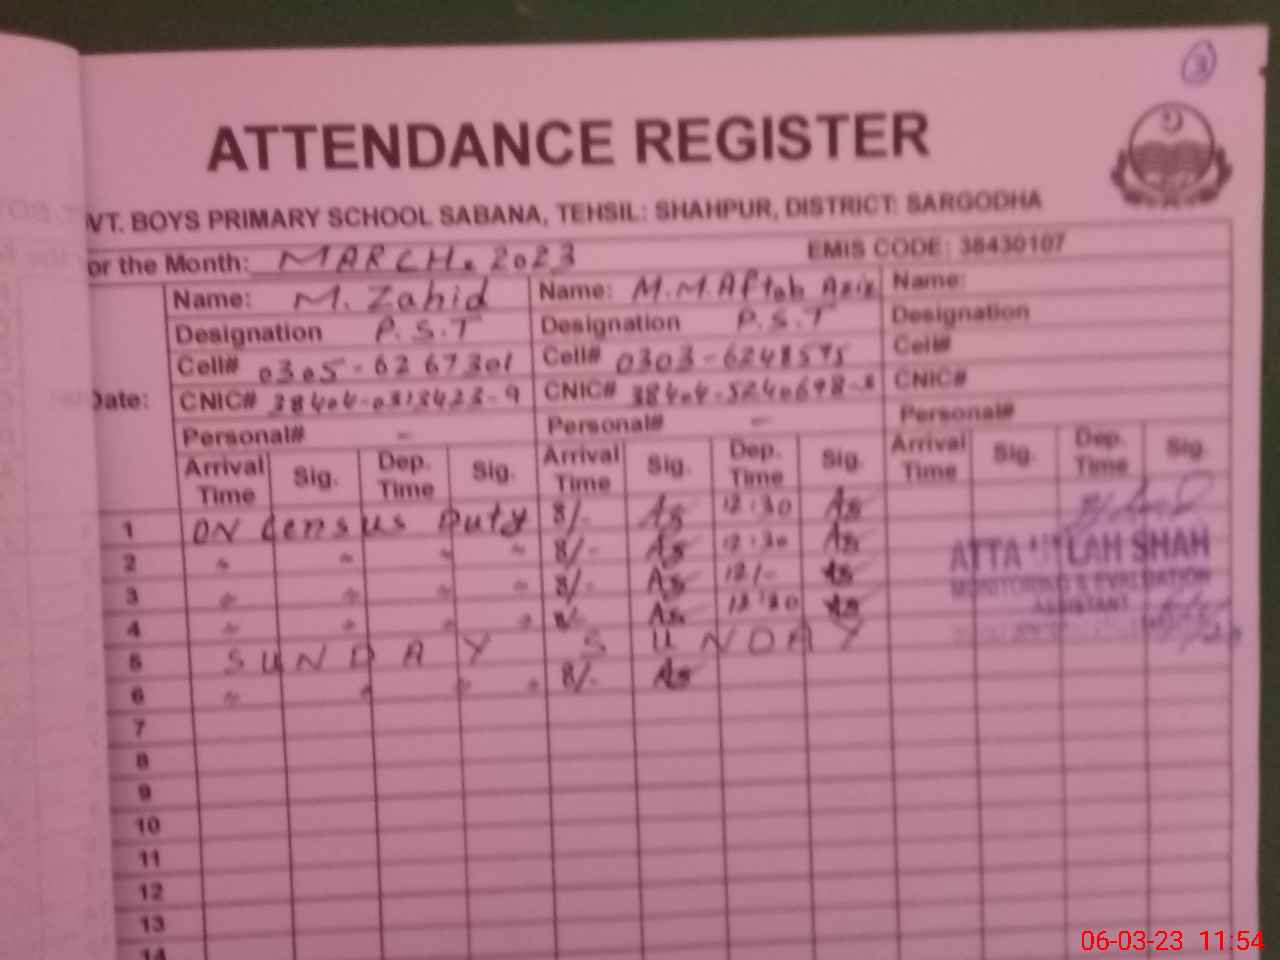 3
ATTENDANCE REGISTER
VT. BOYS PRIMARY SCHOOL SABANA, TEHSIL: SHAHPUR, DISTRICT: SARGODHA
or the Month: MARCH. 2023 EMIS CODE: 38430107
Name: M. Zahid Name: M.M.Aftab Aziz Name:
Designation P.S.T Designation P.S.T Designation
Cell# 0305-6267301 Cell# 0303-6248595 Cell#
Date: CNIC# 38404-0313423-9 CNIC# 38404-5240698-3 CNIC#
Personal# - Personal# - Personal#
Arrival Time Sig. Dep. Time Sig. Arrival Time Sig. Dep. Time Sig. Arrival Time Sig. Dep. Time Sig.
1 ON Census Duty 8/- As 12:30 As
2 " " " " 8/- As 12:30 As
3 " " " " 8/- As 12/- As
4 " " " " 8/- As 12:30 As
5 SUNDAY SUNDAY
6 " " " " 8/- As
7
8
9
10
11
12
13
14
SHAH
MONITORING & EVALUATION
ASSISTANT
06-03-23 11:54